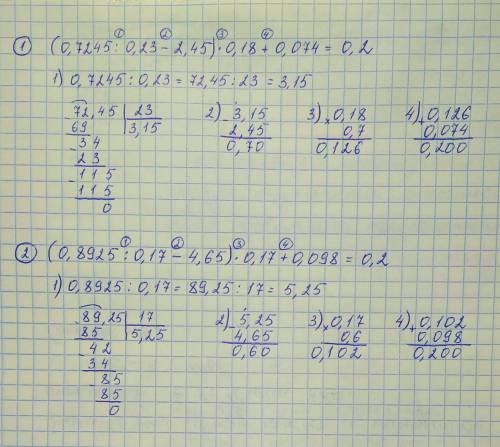 ① ② ③ ④
① (0,7245 : 0,23 − 2,45) · 0,18 + 0,074 = 0,2
1) 0,7245 : 0,23 = 72,45 : 23 = 3,15
72,45 | 23 2) 3,15 3) × 0,18 4) + 0,126
− 69 3,15 − 2,45 0,7 0,074
− 34 0,70 0,126 0,200
23
− 115
115
0
① ② ③ ④
② (0,8925 : 0,17 − 4,65) · 0,17 + 0,098 = 0,2
1) 0,8925 : 0,17 = 89,25 : 17 = 5,25
− 89,25 | 17 2) − 5,25 3) × 0,17 4) + 0,102
85 5,25 4,65 0,6 0,098
− 42 0,60 0,102 0,200
34
− 85
85
0